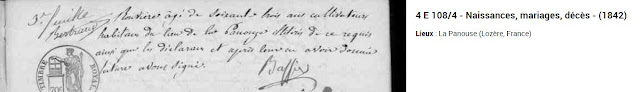 3e feuille
Bertrand
Routière âgé de Soixante trois ans cultivateur
habitan du lieu de la Panouse Illitrés de ce requis
ainsi que les déclarans et après leur en avoir donné
lecture avons Signé.
Baffie
TIMBRE ROYAL
4 E 108/4 - Naissances, mariages, décès - (1842)
Lieux : La Panouse (Lozère, France)